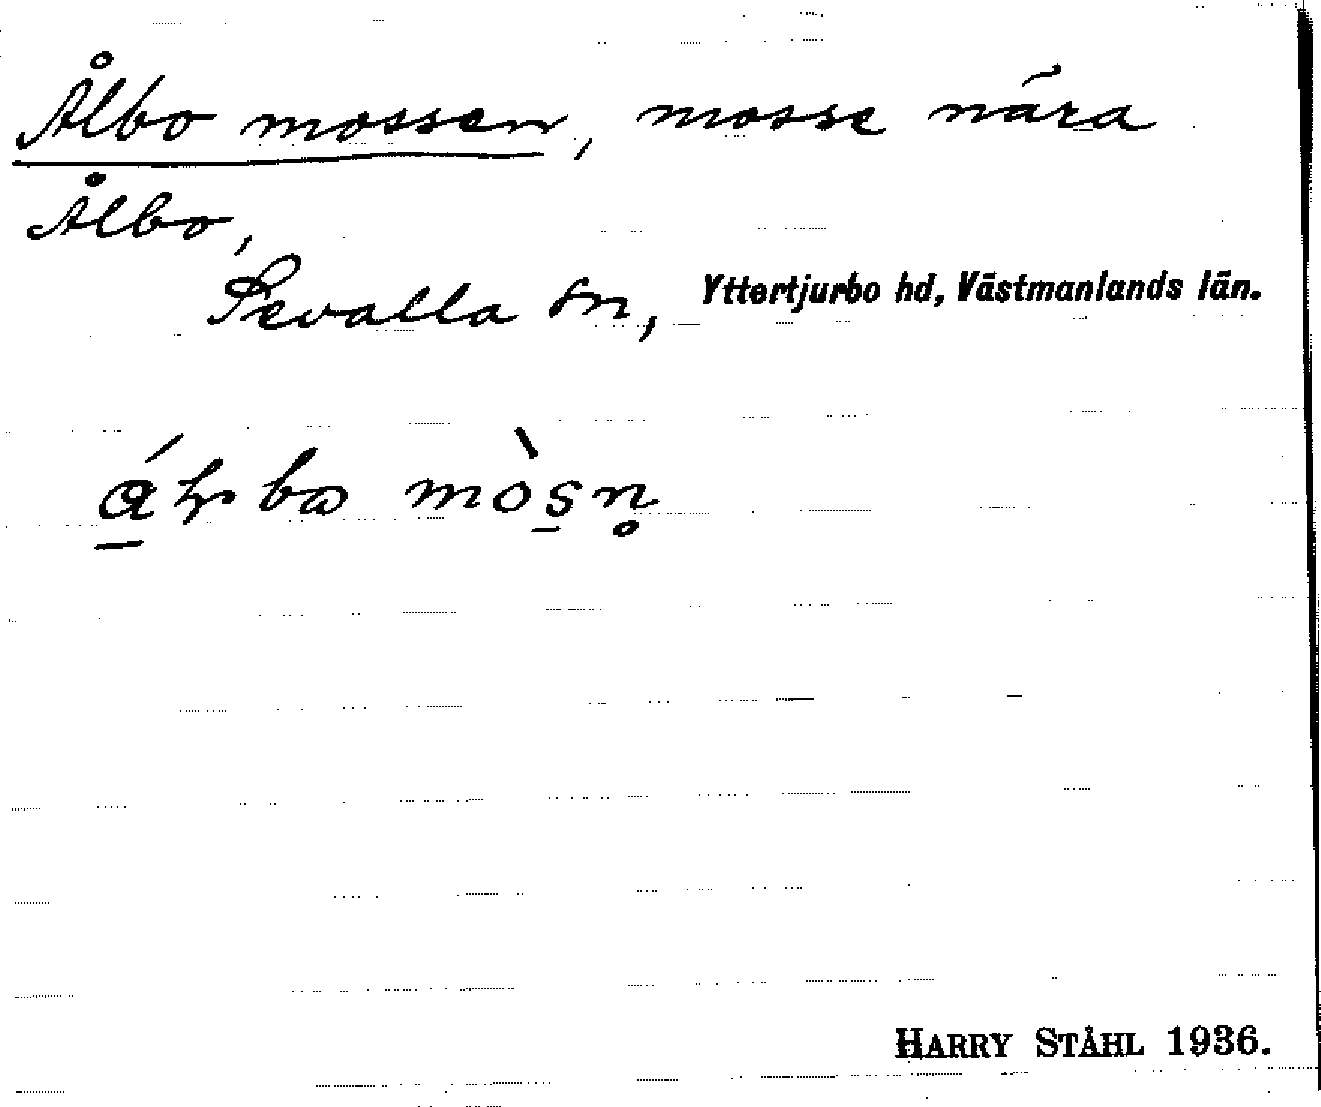 Ålbo mossen, mosse nära
Ålbo,
Sevalla sn, Yttertjurbo hd, Västmanlands län.
HARRY STÅHL 1936.